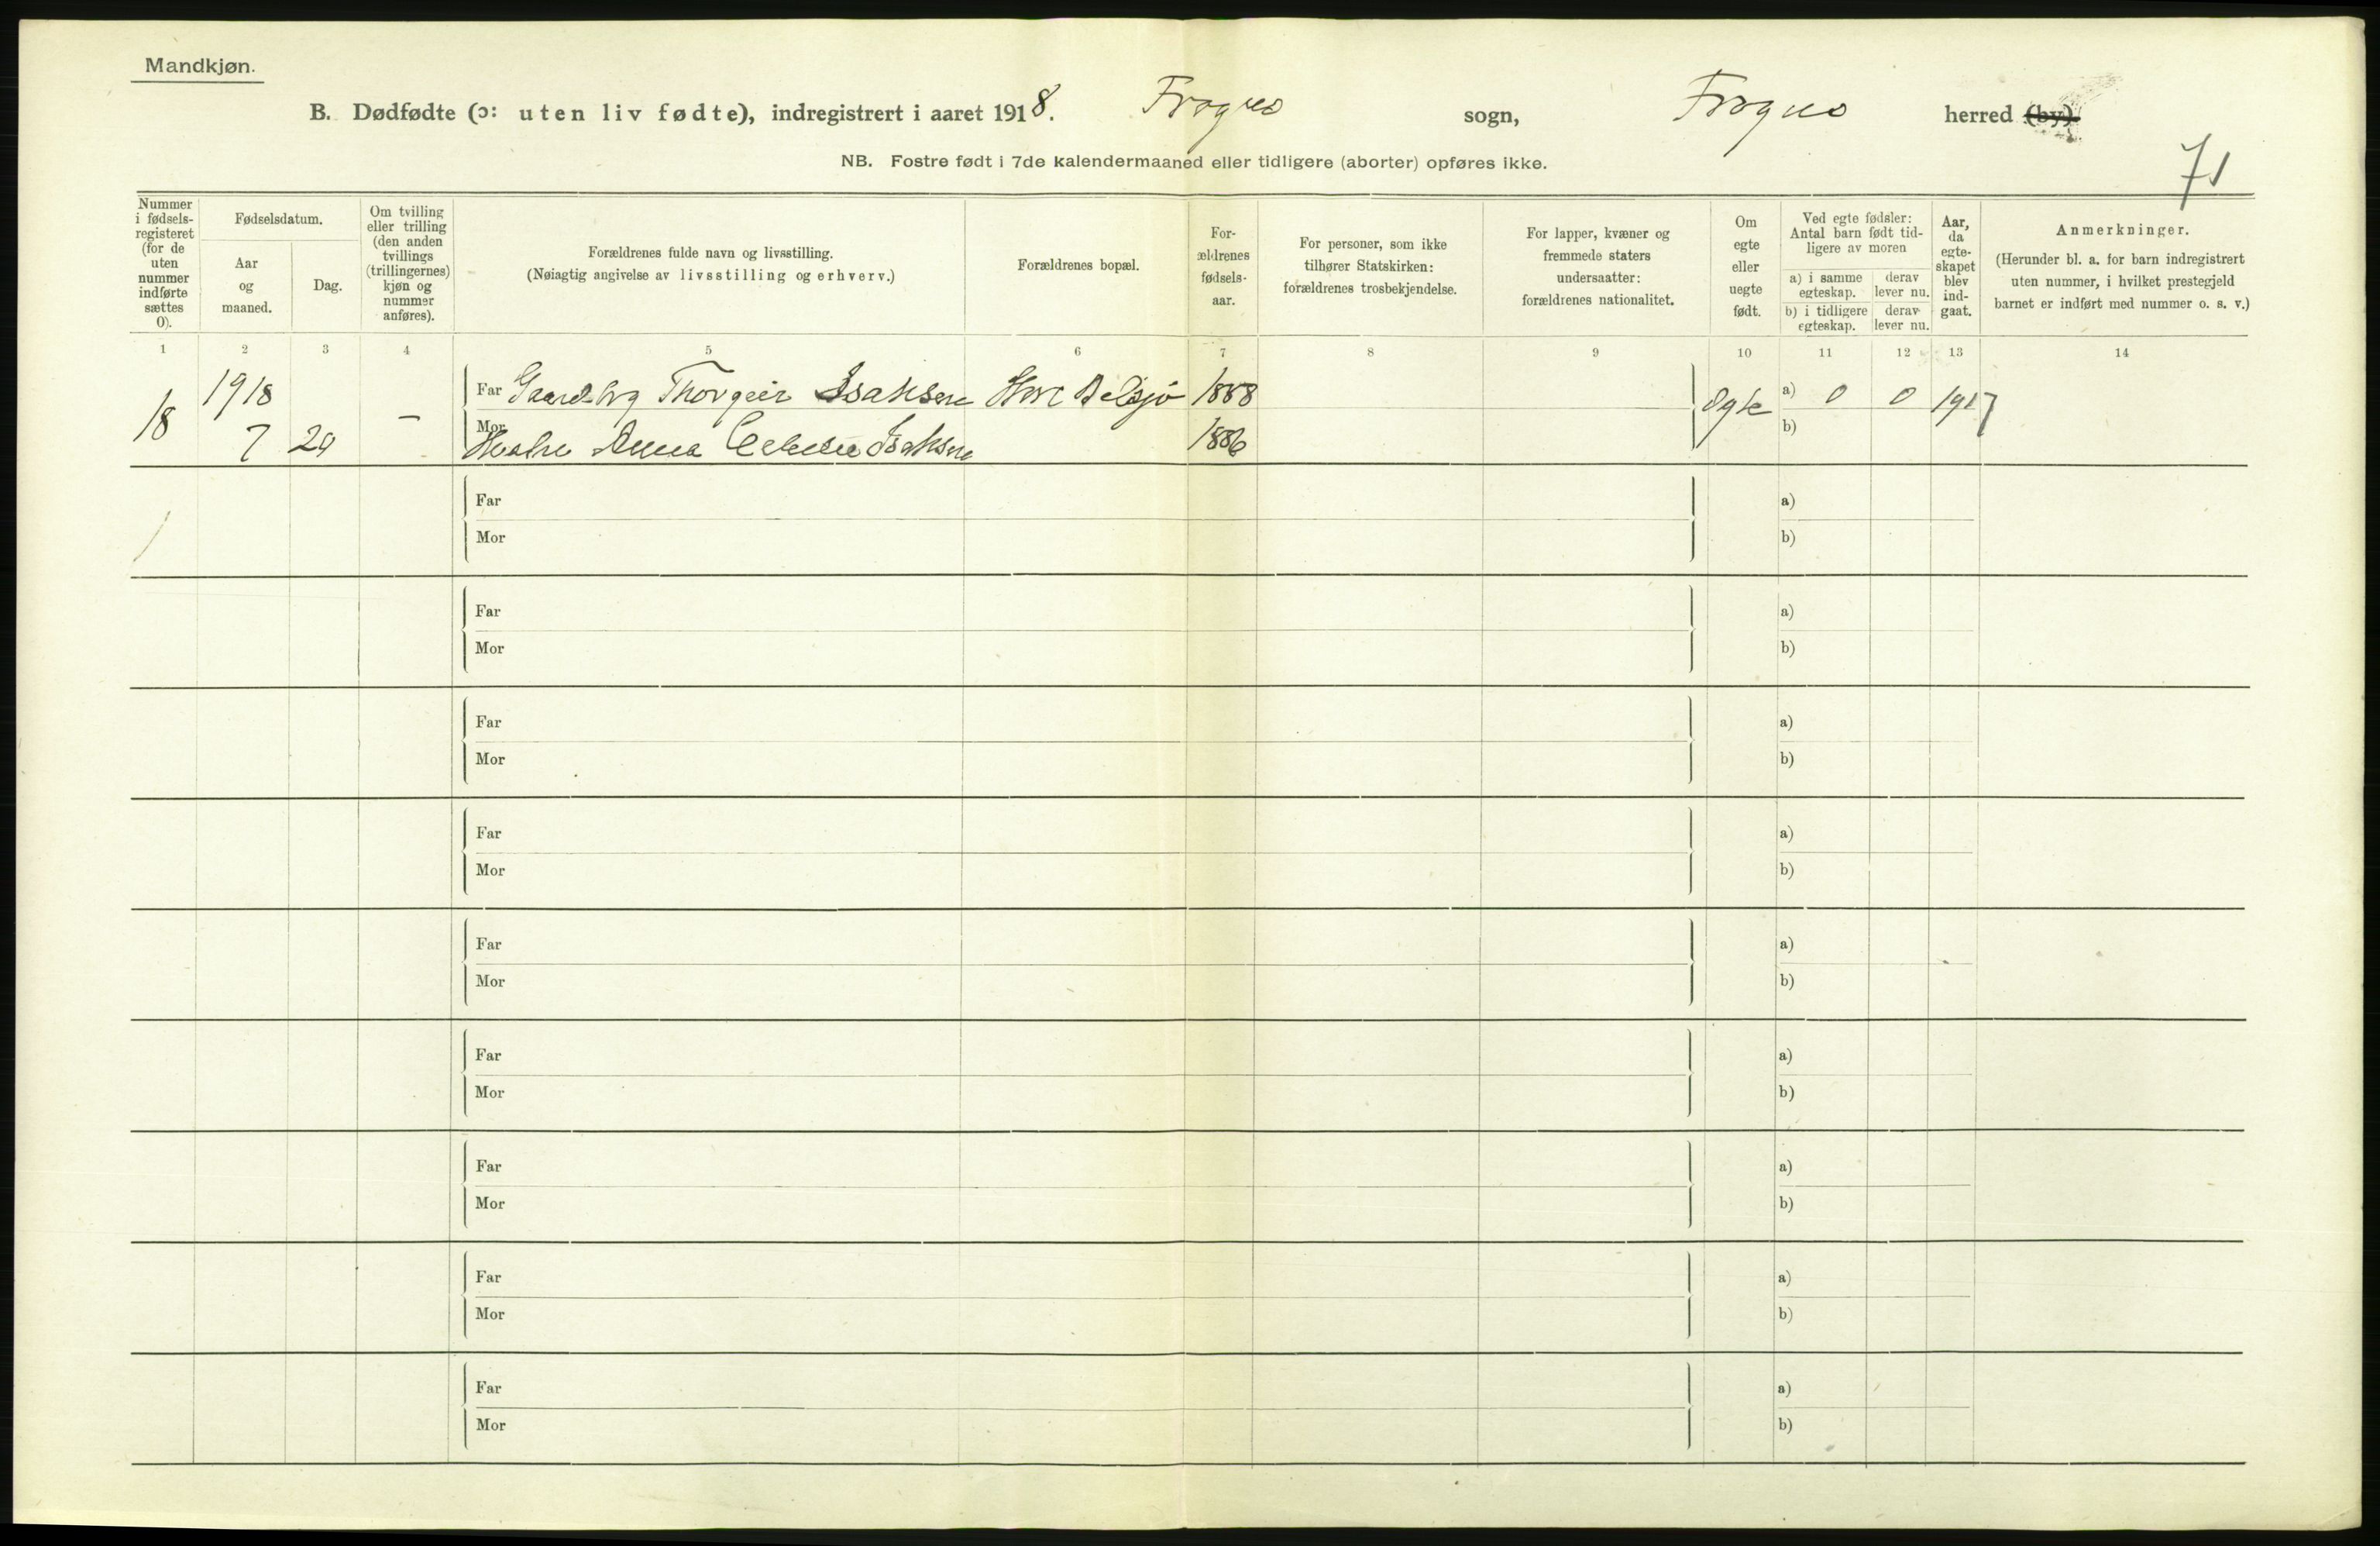 Mandkjøn.
B. Dødfødte (ɔ: uten liv fødte), indregistrert i aaret 1918. Frogner sogn, Frogner herred (by).
NB. Fostre født i 7de kalendermaaned eller tidligere (aborter) opføres ikke.
71
Nummer i fødsels-registeret (for de uten nummer indførte sættes 0).
Fødselsdatum.
Aar og maaned.
Dag.
Om tvilling eller trilling (den anden tvillings (trillingernes) kjøn og nummer anføres).
Forældrenes fulde navn og livsstilling.
(Nøiagtig angivelse av livsstilling og erhverv.)
Forældrenes bopæl.
For-ældrenes fødsels-aar.
For personer, som ikke tilhører Statskirken: forældrenes trosbekjendelse.
For lapper, kvæner og fremmede staters undersaatter: forældrenes nationalitet.
Om egte eller uegte født.
Ved egte fødsler: Antal barn født tid-ligere av moren
a) i samme egteskap.
derav lever nu.
b) i tidligere egteskap.
derav lever nu.
Aar, da egte-skapet blev ind-gaat.
Anmerkninger.
(Herunder bl. a. for barn indregistrert uten nummer, i hvilket prestegjeld barnet er indført med nummer o. s. v.)
1 2 3 4 5 6 7 8 9 10 11 12 13 14
1918 Far Thorgeir Isaksen 1888 a) 0 0 1917
18 7 – Egte
Mor Hustru Anna Isaksen 1886 b)
Far a)
Mor b)
Far a)
Mor b)
Far a)
Mor b)
Far a)
Mor b)
Far a)
Mor b)
Far a)
Mor b)
Far a)
Mor b)
Far a)
Mor b)
Far a)
Mor b)